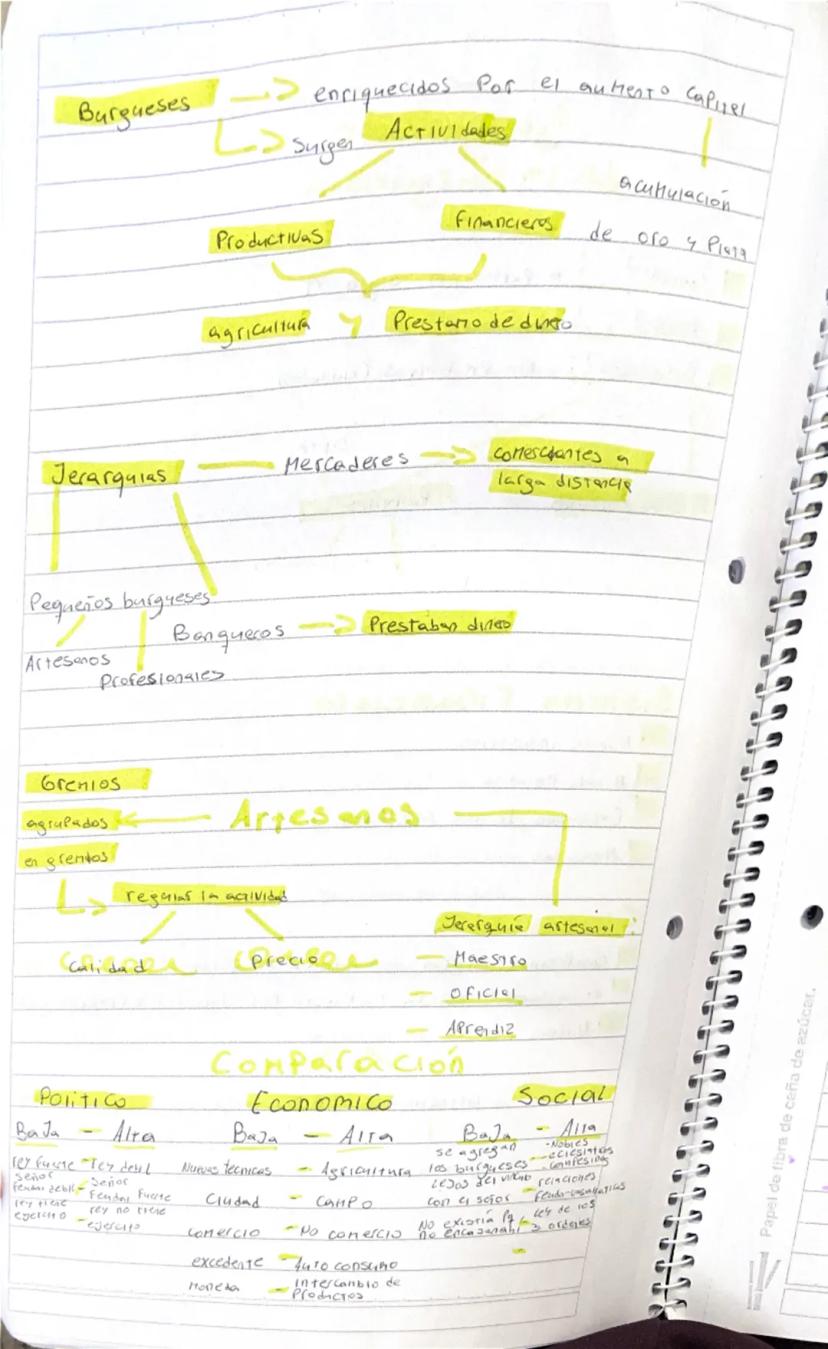 Burgueses → enriquecidos Por el aumento Capital
↳ Surgen Actividades
acumulación
Productivas Financieros de oro y Plata
agricultura y Prestamo de dinero
Jerarquias — Mercaderes → comerciantes a
larga distancia
Pequeños burgueses
Banqueros → Prestaban dinero
Artesanos
Profesionales
Gremios
agrupados ← Artesanos
en gremios
↳ regular la actividad
Jerarquía artesanal:
Calidad Precio - Maestro
- Oficial
- Aprendiz
Comparación
Politico Economico Social
Baja - Alta Baja - Alta Baja - Alta
rey fuerte - rey debil
señor feudal debil - Señor Feudal fuerte
rey tiene ejercito - rey no tiene ejercito
Nuevas tecnicas - Agricultura
Ciudad - campo
comercio - No comercio
excedente - Auto consumo
moneda - Intercambio de Productos
se agregan los burgueses - Nobles
- eclesiastas
- campesinos
Lejos del
con el señor - relaciones
No existía
no encajaban - Ley de los 3 ordenes
Papel de fibra de caña de azúcar.